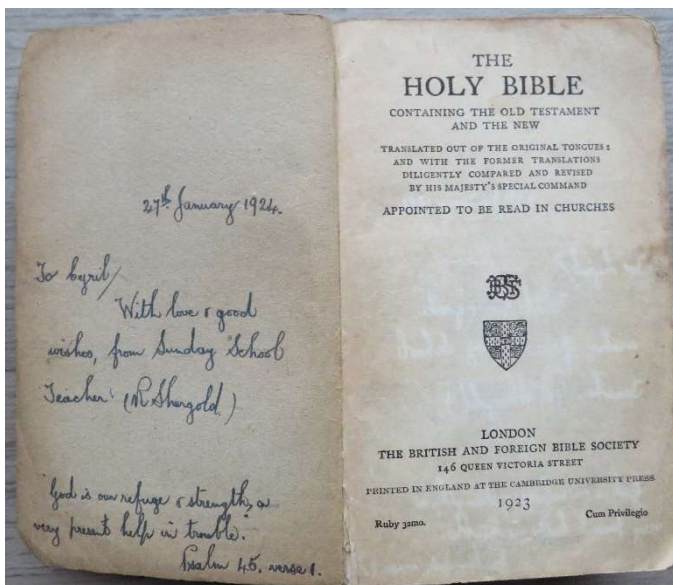 27th January 1924.
To Cyril/
With love & good
wishes, from Sunday School
Teacher. (R Shergold)
"God is our refuge & strength, a
very present help in trouble."
Psalm 45. verse 1.
THE
HOLY BIBLE
CONTAINING THE OLD TESTAMENT
AND THE NEW
TRANSLATED OUT OF THE ORIGINAL TONGUES:
AND WITH THE FORMER TRANSLATIONS
DILIGENTLY COMPARED AND REVISED
BY HIS MAJESTY'S SPECIAL COMMAND
APPOINTED TO BE READ IN CHURCHES
LONDON
THE BRITISH AND FOREIGN BIBLE SOCIETY
146 QUEEN VICTORIA STREET
PRINTED IN ENGLAND AT THE CAMBRIDGE UNIVERSITY PRESS
1923
Ruby 32mo. Cum Privilegio